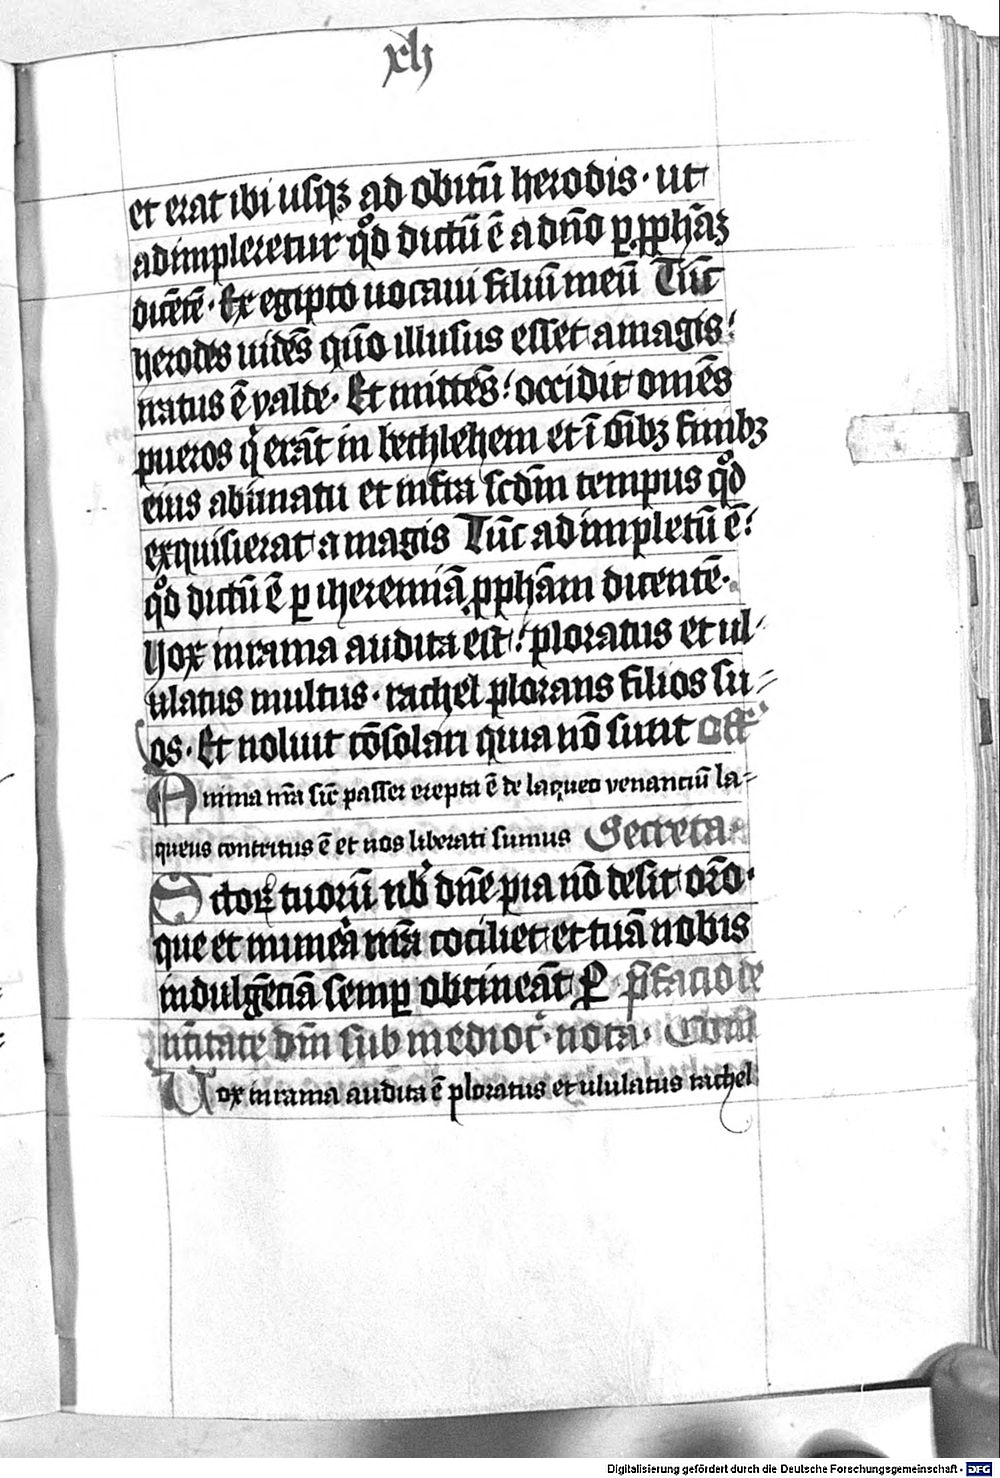 xlj
et erat ibi usqꝫ ad obitū herodis · ut
adimpleretur qͦd dictū ē a dn̄o ꝑ ꝓph̄aꝫ
dicētē · Ex egipto uocaui filiū meū Tūc
herodes uidēs qūo illusus esset a magis :
iratus ē valde · Et mittēs : occidit om̄es
pueros qͥ erāt in bethlehem et ī oībꝫ finibꝫ
eius a bimatu et infra scdm̄ tempus qͦd
exquisierat a magis Tūc adimpletū ē :
qͦd dictū ē ꝑ iheremiā ꝓph̄am dicentē ·
Uox in rama audita est : ploratus et ul-
ulatus multus · rachel plorans filios su-
os · Et noluit cōsolari quia nō sunt Off
Anima nr̄a sic̄ passer erepta ē de laqueo venanciū la-
queus contritus ē et nos liberati sumus Secreta
Sctoꝝ tuorū nobͥ dn̄e pia nō desit orō ·
que et munera nr̄a cōciliet et tuā nobis
indulgēciā semꝑ obtineāt ꝑ p̄facio de
natiuitate dm̄ sub mediocͥ · nota · Cōm
Uox in rama audita ē ploratus et ululatus rachel
Digitalisierung gefördert durch die Deutsche Forschungsgemeinschaft - DFG